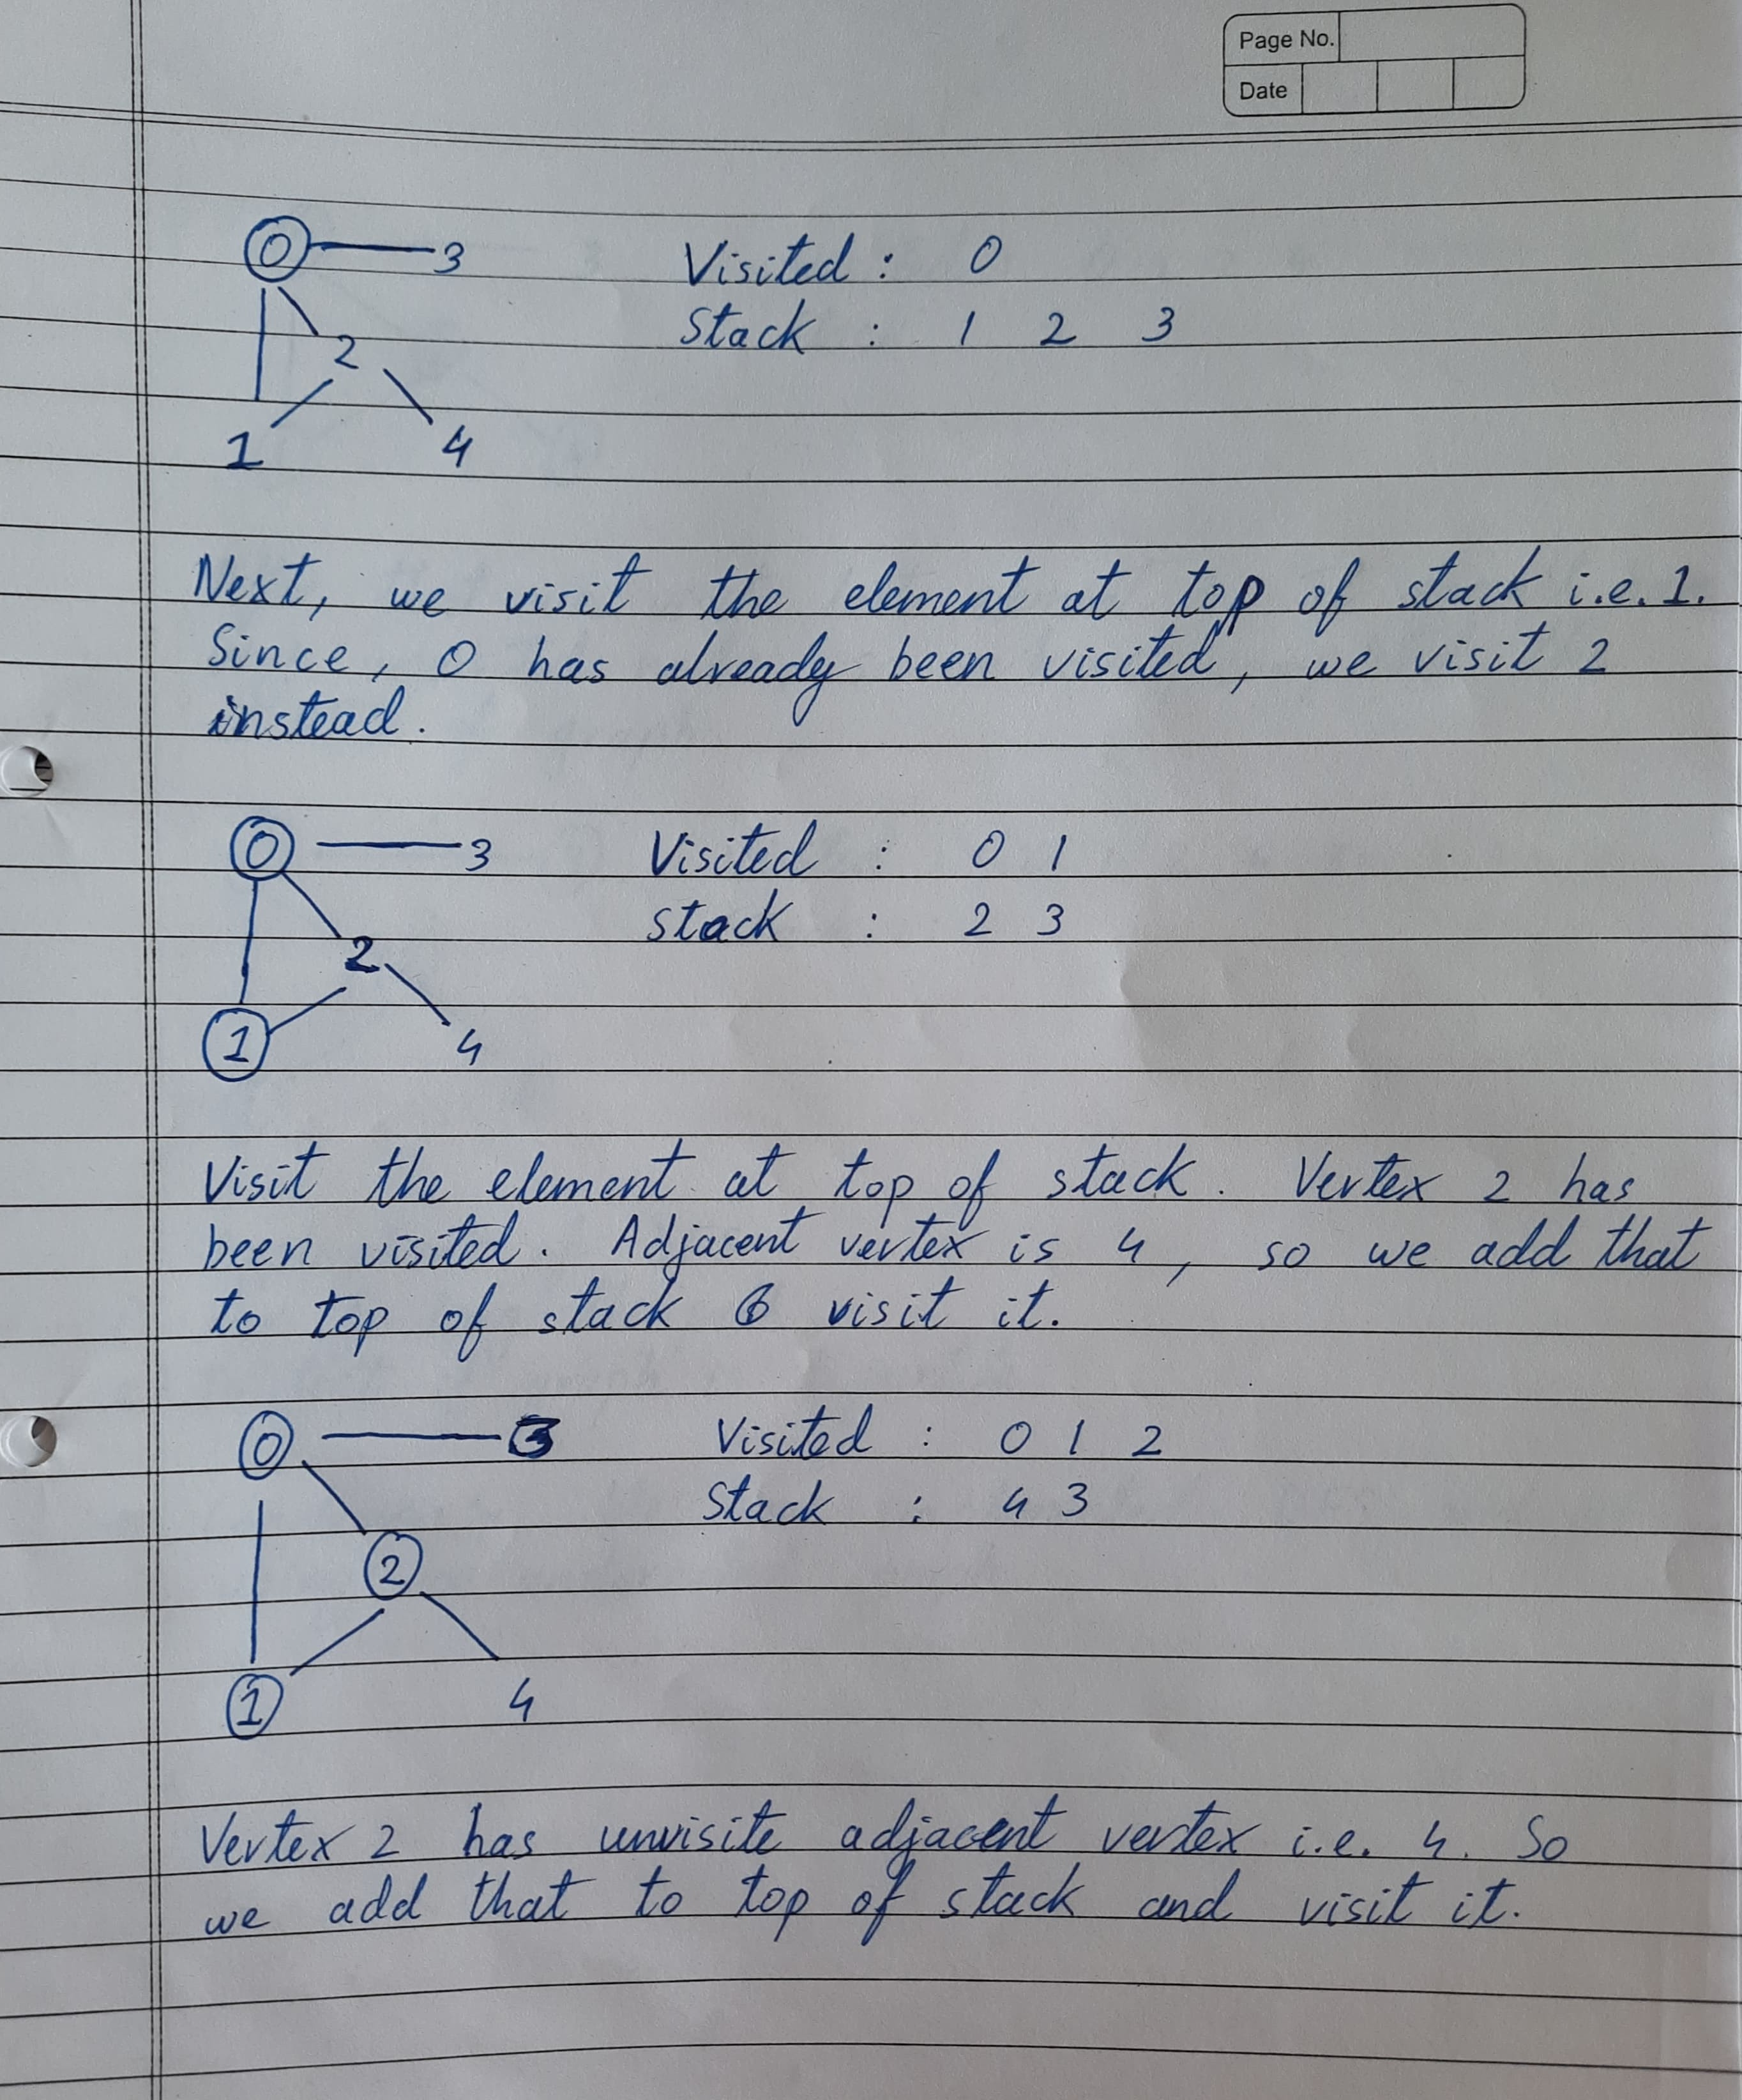 Page No.
Date
0 3 Visited : 0
Stack : 1 2 3
2
1 4
Next, we visit the element at top of stack i.e. 1.
Since, 0 has already been visited, we visit 2
instead.
0 3 Visited : 0 1
stack : 2 3
2
1 4
Visit the element at top of stack. Vertex 2 has
been visited. Adjacent vertex is 4, so we add that
to top of stack & visit it.
0 3 Visited : 0 1 2
Stack : 4 3
2
1 4
Vertex 2 has unvisite adjacent vertex i.e. 4. So
we add that to top of stack and visit it.